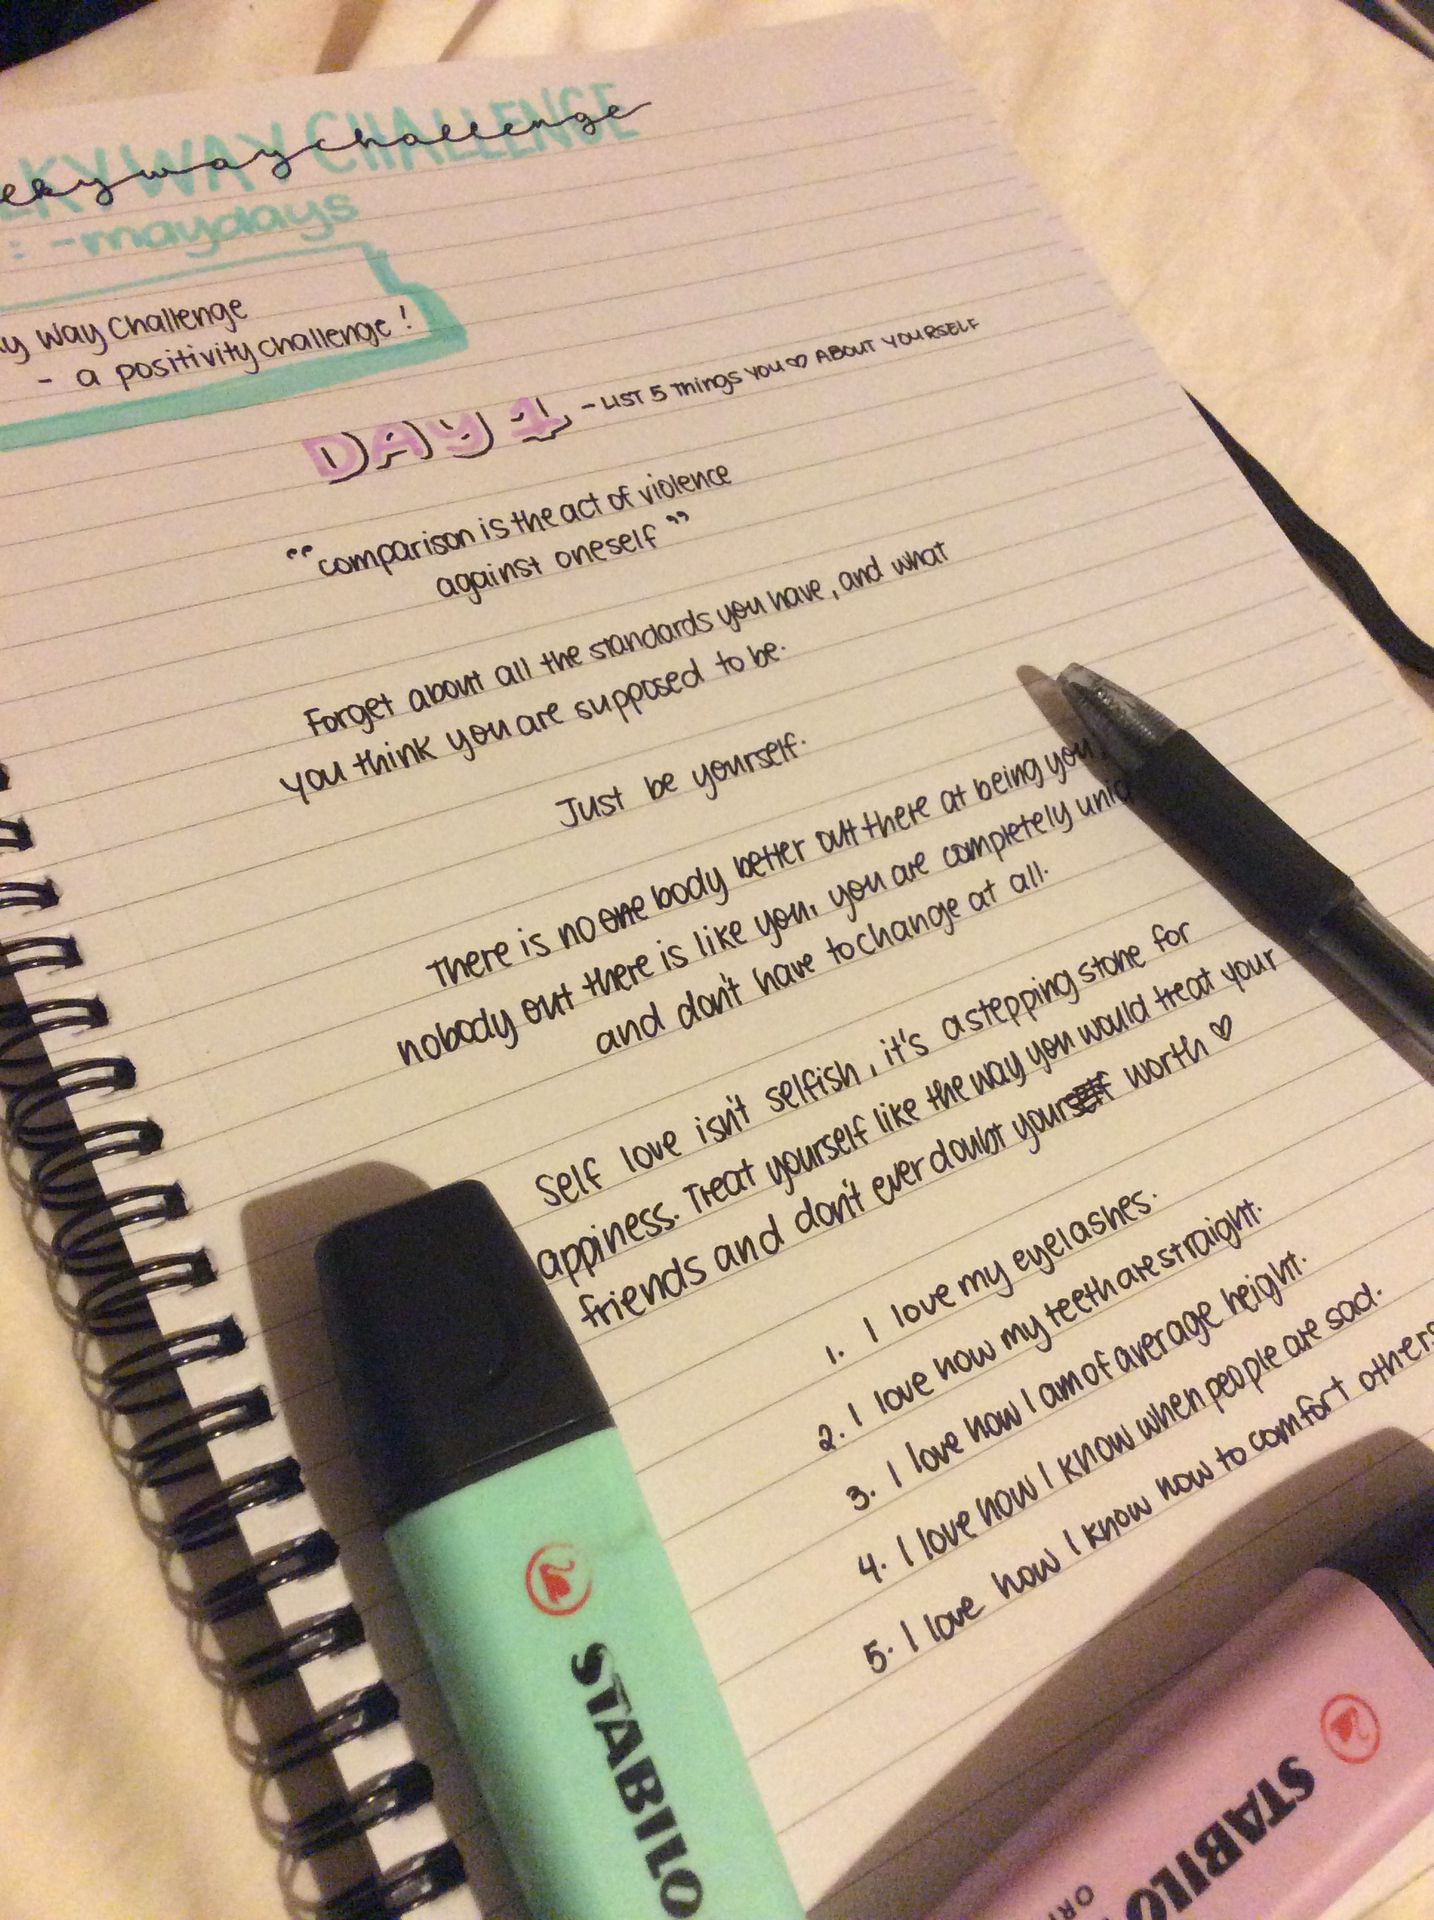 WAY CHALLENGE
waychallenge
: -maydays
Way Challenge
- a positivity challenge!
DAY 1 - LIST 5 Things YOU ♡ ABOUT YOURSELF
"comparison is the act of violence
against oneself"
Forget about all the standards you have, and what
you think you are supposed to be.
Just be yourself.
There is no one body better out there at being you,
nobody out there is like you, you are completely
and don't have to change at all.
Self love isn't selfish, it's a stepping stone for
appiness. Treat yourself like the way you would treat your
friends and don't ever doubt your worth ♡
1. I love my eyelashes.
2. I love how my teeth are straight.
3. I love how I am of average height.
4. I love how I know when people are sad.
5. I love how I know how to comfort others
STABILO
STABILO